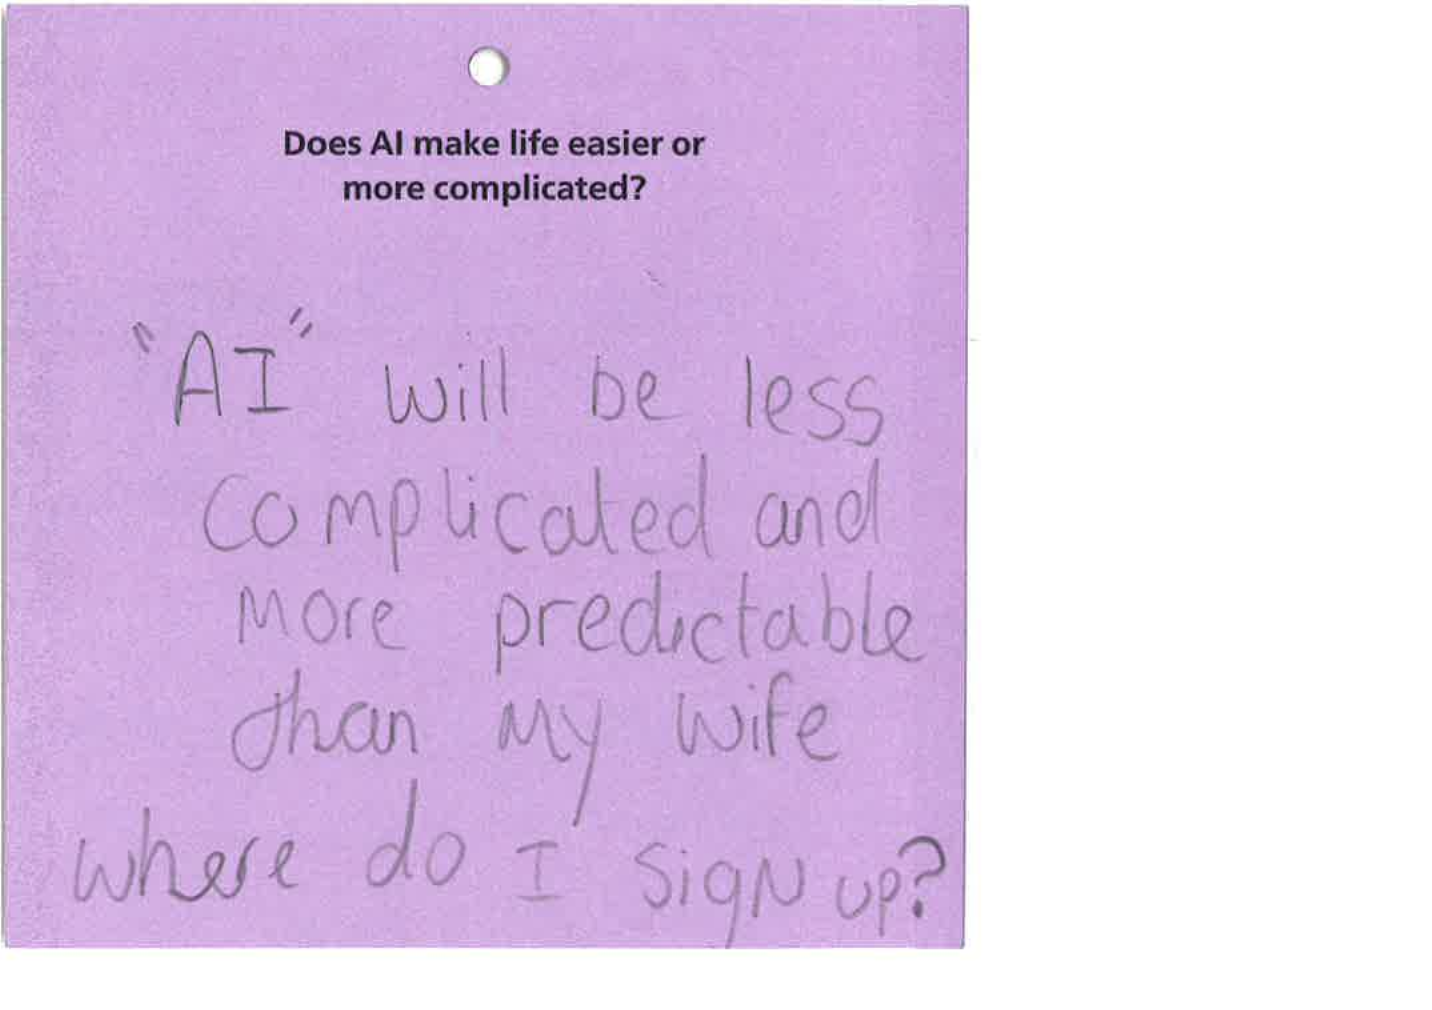 Does AI make life easier or
more complicated?
"AI" will be less
complicated and
more predictable
than my wife
where do I sign up?